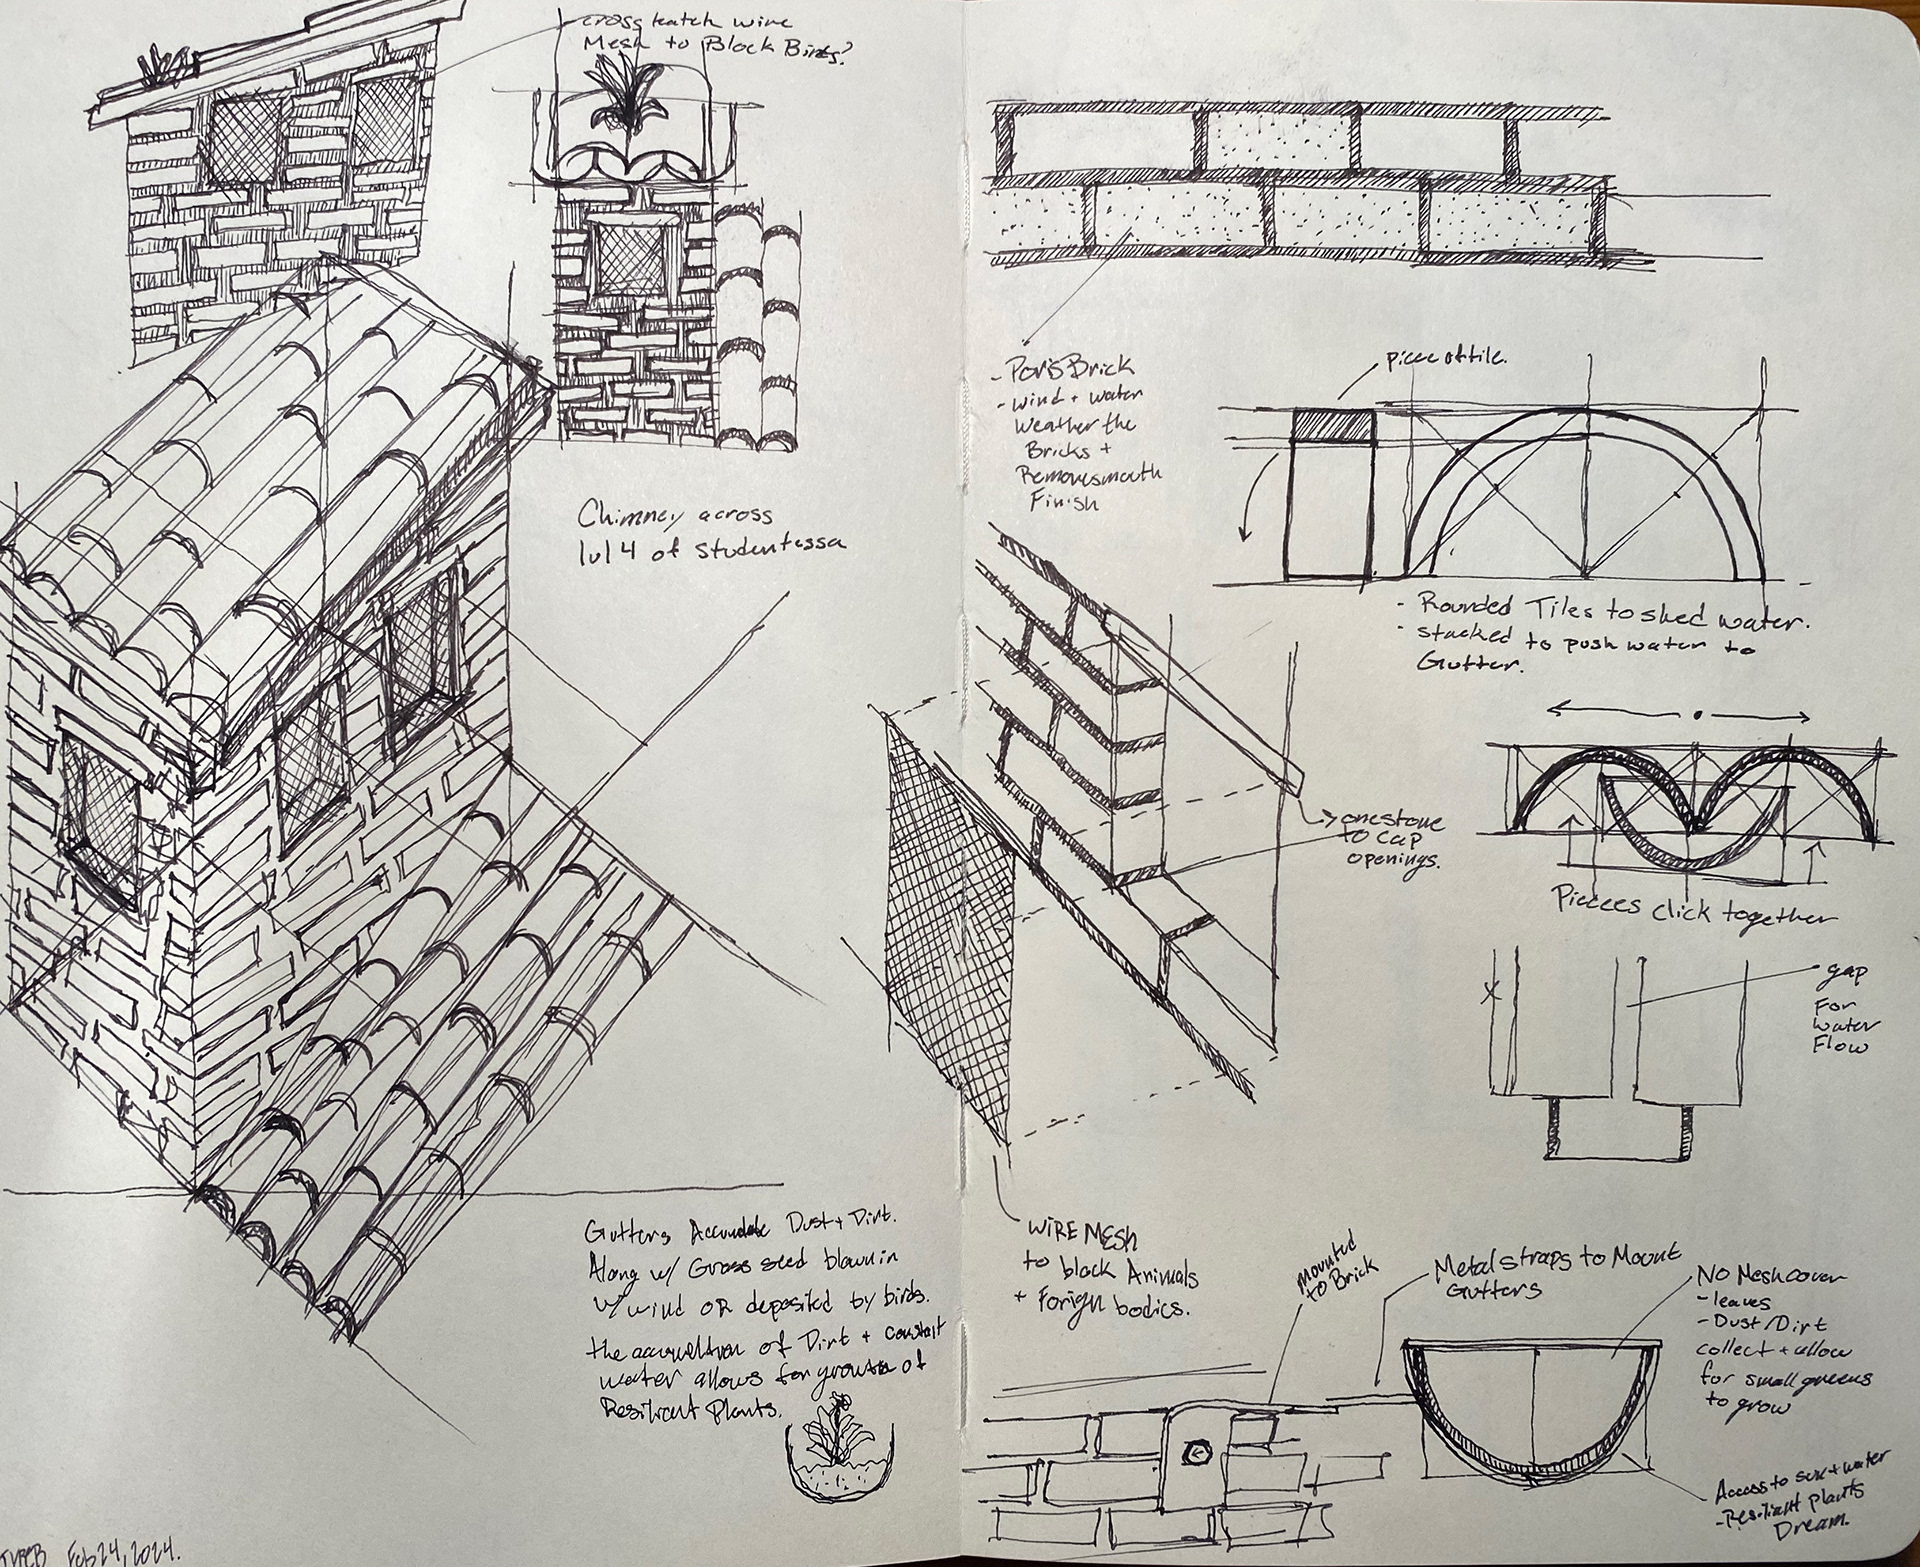 cross hatch wire
Mesh to Block Birds?
Chimney across
lvl 4 of studentessa
Gutters Accumulate Dust + Dirt.
Along w/ Grass seed blown in
w/ wind OR deposited by birds.
the of Dirt + constant
water allows for growth of
Resilient Plants.
Feb 24, 2024.
- Poris Brick
- wind + water
weather the
Bricks +
Remove smooth
Finish
piece of tile.
- Rounded Tiles to shed water.
- stacked to push water to
Gutter.
one stone
to cap
openings.
Pieces click together
gap
For
water
Flow
WIRE MESH
to block Animals
+ Forign bodies.
mounted
to Brick
Metal straps to Mount
Gutters
No Mesh cover
- leaves
- Dust/Dirt
collect + allow
for small greens
to grow
Access to sun + water
- Resiliant plants
Dream.